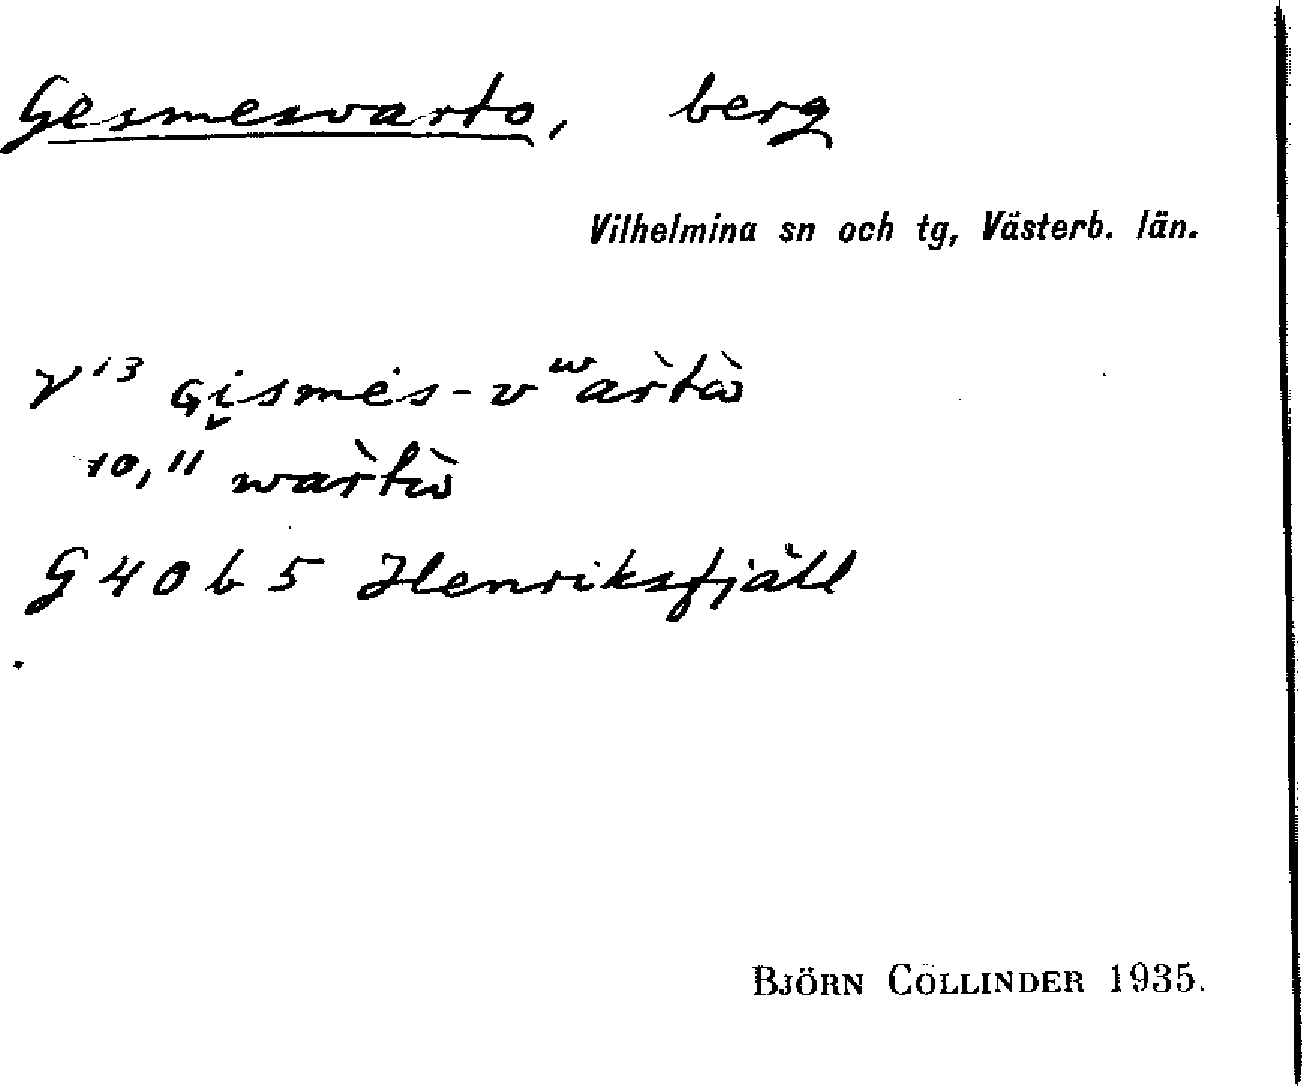 Gesmesvarto, berg
Vilhelmina sn och tg, Västerb. län.
V¹³ Gi̬smės-vʷar̀tὼ
¹⁰,¹¹ war̀tὼ
G 40 b 5 Henriksfjäll
BJÖRN COLLINDER 1935.